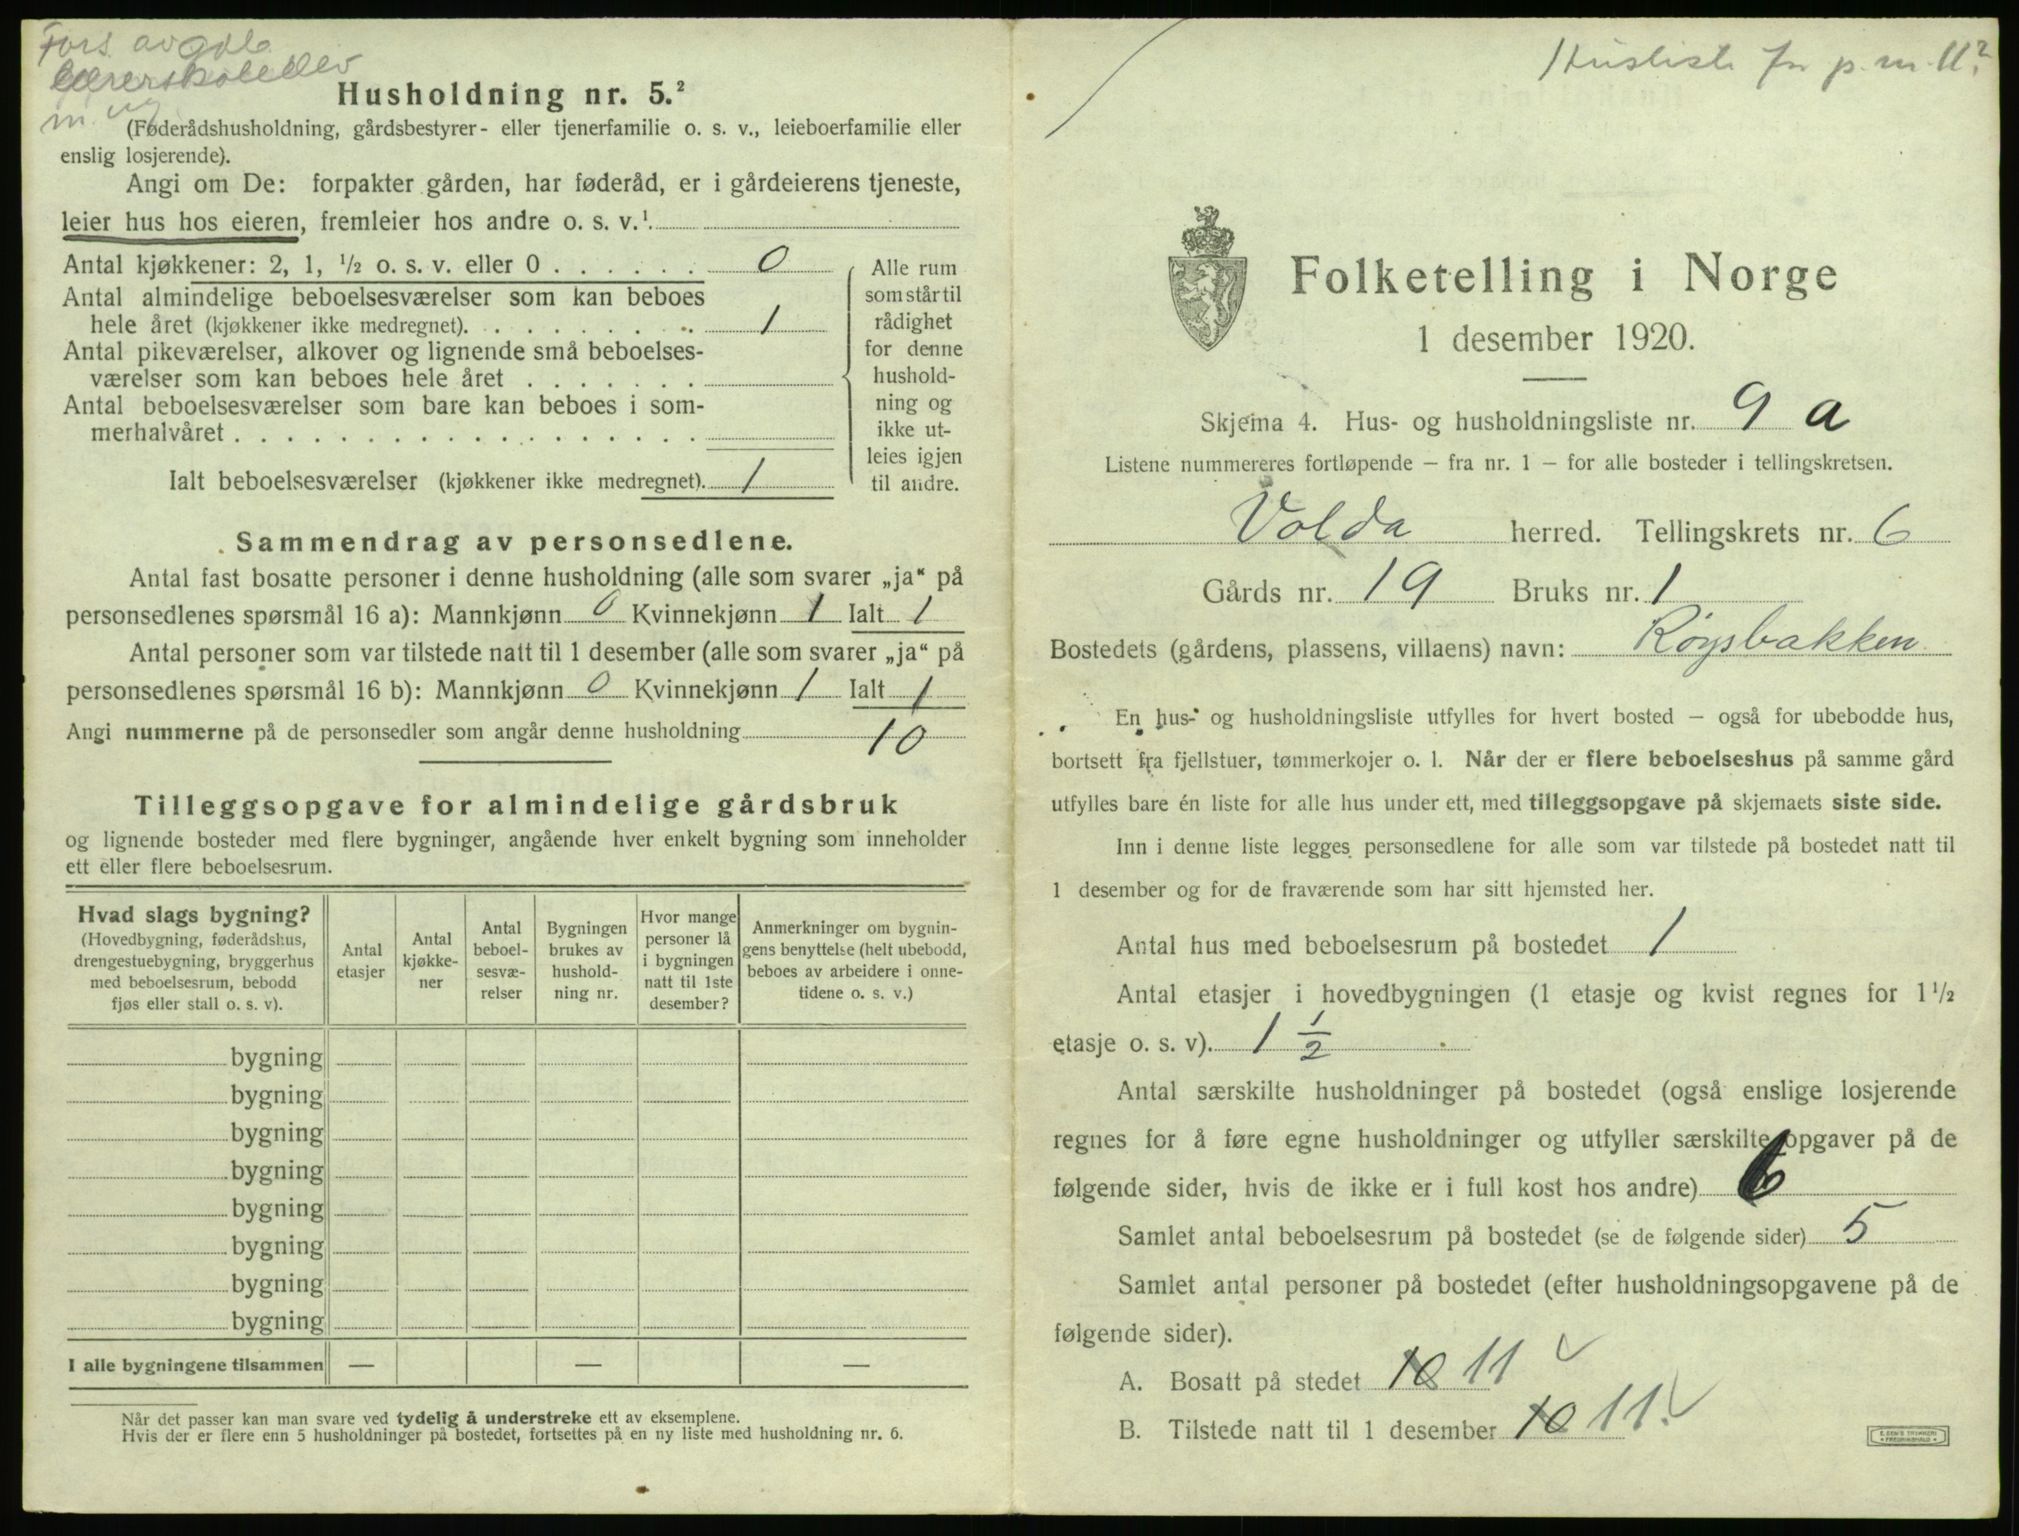 Fors. av odb
lærerskoleelev
m. ug.
Husholdning nr. 5.²
(Føderådshusholdning, gårdsbestyrer- eller tjenerfamilie o. s. v., leieboerfamilie eller
enslig losjerende).
Angi om De: forpakter gården, har føderåd, er i gårdeierens tjeneste,
leier hus hos eieren, fremleier hos andre o. s. v.¹
Antal kjøkkener: 2, 1, ½ o. s. v. eller 0 . . . . . . 0
Antal almindelige beboelsesværelser som kan beboes
hele året (kjøkkener ikke medregnet). . . . . . . . . 1
Antal pikeværelser, alkover og lignende små beboelses-
værelser som kan beboes hele året . . . . . . .
Antal beboelsesværelser som bare kan beboes i som-
merhalvåret . . . . . . . . . . . . . . . . . .
Ialt beboelsesværelser (kjøkkener ikke medregnet). 1
Alle rum
som står til
rådighet
for denne
hushold-
ning og
ikke ut-
leies igjen
til andre.
Sammendrag av personsedlene.
Antal fast bosatte personer i denne husholdning (alle som svarer „ja“ på
personsedlenes spørsmål 16 a): Mannkjønn 0 Kvinnekjønn 1 Ialt 1
Antal personer som var tilstede natt til 1 desember (alle som svarer „ja“ på
personsedlenes spørsmål 16 b): Mannkjønn 0 Kvinnekjønn 1 Ialt 1
Angi nummerne på de personsedler som angår denne husholdning 10
Tilleggsopgave for almindelige gårdsbruk
og lignende bosteder med flere bygninger, angående hver enkelt bygning som inneholder
ett eller flere beboelsesrum.
Hvad slags bygning?
(Hovedbygning, føderådshus,
drengestuebygning, bryggerhus
med beboelsesrum, bebodd
fjøs eller stall o. s. v).
Antal
etasjer
Antal
kjøkke-
ner
Antal
beboel-
sesvæ-
relser
Bygningen
brukes av
hushold-
ning nr.
Hvor mange
personer lå
i bygningen
natt til 1ste
desember?
Anmerkninger om bygnin-
gens benyttelse (helt ubebodd,
beboes av arbeidere i onne-
tidene o. s. v.)
bygning
bygning
bygning
bygning
bygning
bygning
bygning
bygning
I alle bygningene tilsammen — — —
Når det passer kan man svare ved tydelig å understreke ett av eksemplene.
Hvis der er flere enn 5 husholdninger på bostedet, fortsettes på en ny liste med husholdning nr. 6.
Husliste for p. m. 11?
Folketelling i Norge
1 desember 1920.
Skjema 4. Hus- og husholdningsliste nr. 9 a
Listene nummereres fortløpende – fra nr. 1 – for alle bosteder i tellingskretsen.
Volda herred. Tellingskrets nr. 6
Gårds nr. 19 Bruks nr. 1
Bostedets (gårdens, plassens, villaens) navn: Röysbakken
En hus- og husholdningsliste utfylles for hvert bosted – også for ubebodde hus,
bortsett fra fjellstuer, tømmerkojer o. l. Når der er flere beboelseshus på samme gård
utfylles bare én liste for alle hus under ett, med tilleggsopgave på skjemaets siste side.
Inn i denne liste legges personsedlene for alle som var tilstede på bostedet natt til
1 desember og for de fraværende som har sitt hjemsted her.
Antal hus med beboelsesrum på bostedet 1
Antal etasjer i hovedbygningen (1 etasje og kvist regnes for 1½
etasje o. s. v). 1 ½
Antal særskilte husholdninger på bostedet (også enslige losjerende
regnes for å føre egne husholdninger og utfyller særskilte opgaver på de
følgende sider, hvis de ikke er i full kost hos andre) 6
Samlet antal beboelsesrum på bostedet (se de følgende sider) 5
Samlet antal personer på bostedet (efter husholdningsopgavene på de
følgende sider).
A. Bosatt på stedet 10 11 ✓
B. Tilstede natt til 1 desember 10 11. ✓
E. SEM'S TRYKKERI
FREDRIKSHALD